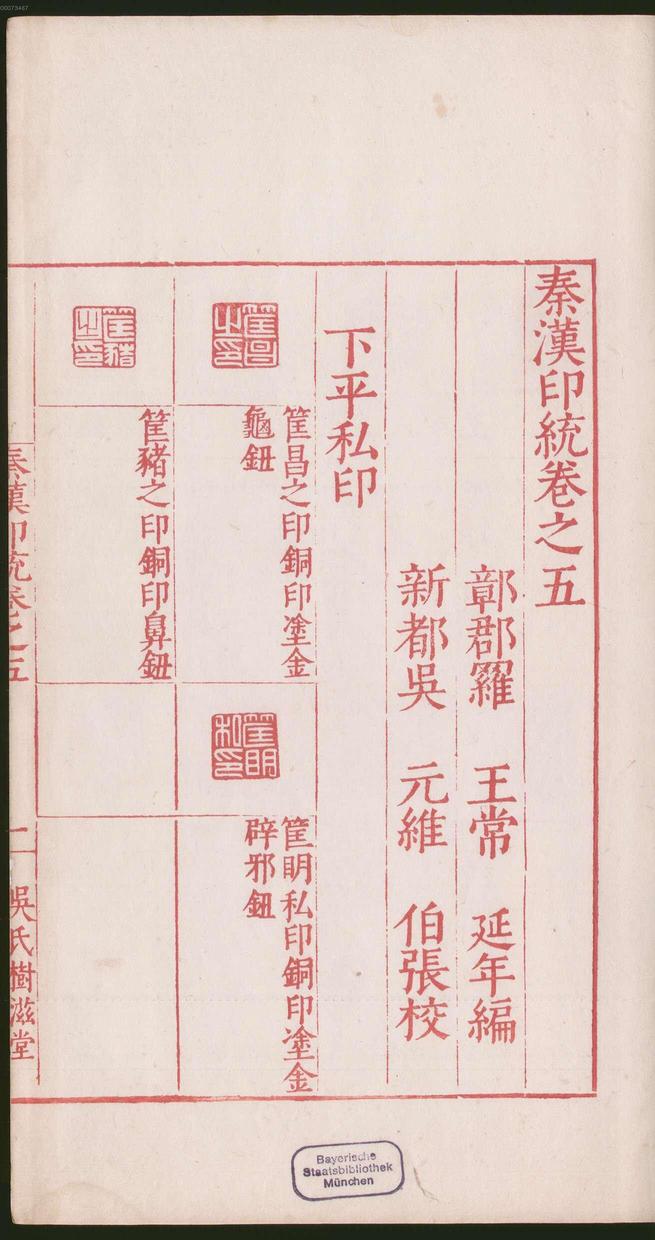 00073467
秦漢印統卷之五
鄣郡羅 王常 延年編
新都吳 元維 伯張校
下平私印
筐昌之印
筐昌之印銅印塗金
龜鈕
筐明私印
筐明私印銅印塗金
辟邪鈕
筐豬之印
筐豬之印銅印鼻鈕
秦漢印統卷之五
二
吳氏樹滋堂
Bayerische
Staatsbibliothek
München